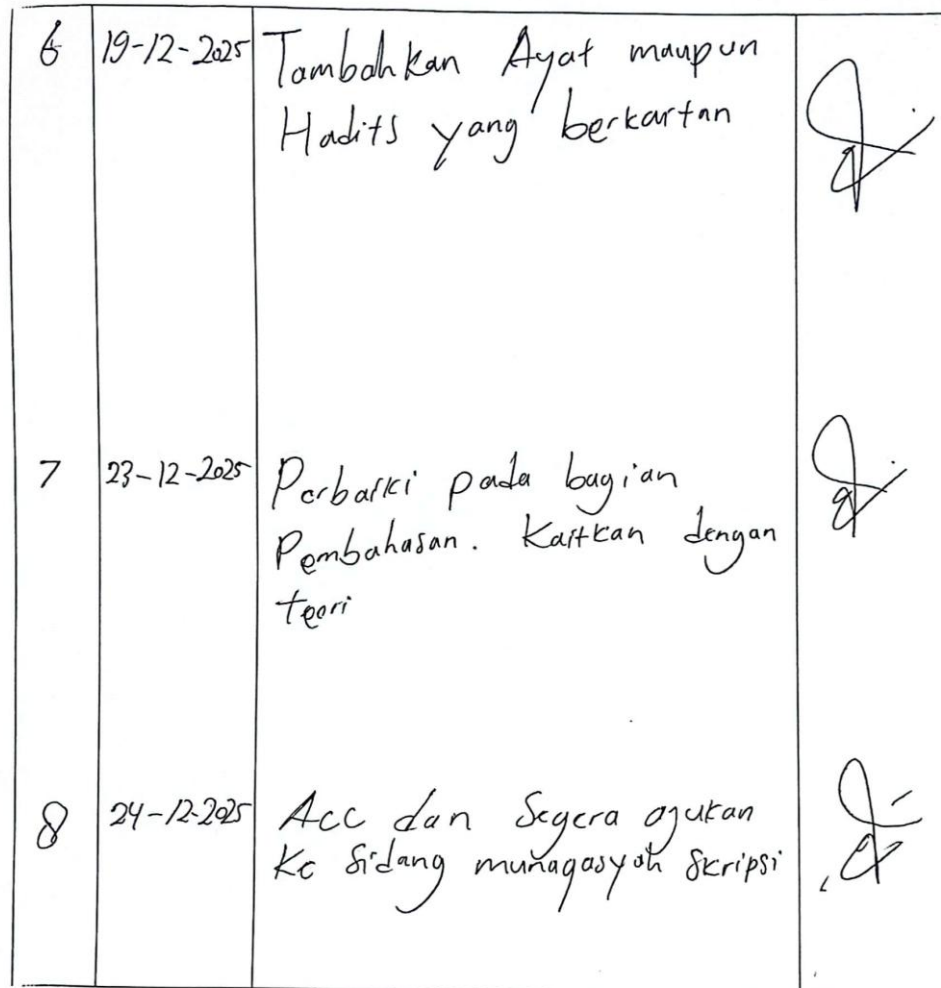 6 19-12-2025 Tambahkan Ayat maupun
Hadits yang berkaitan
7 23-12-2025 Perbaiki pada bagian
Pembahasan. Kaitkan dengan
teori
8 24-12-2025 Acc dan Segera ajukan
Ke Sidang munaqasyah Skripsi